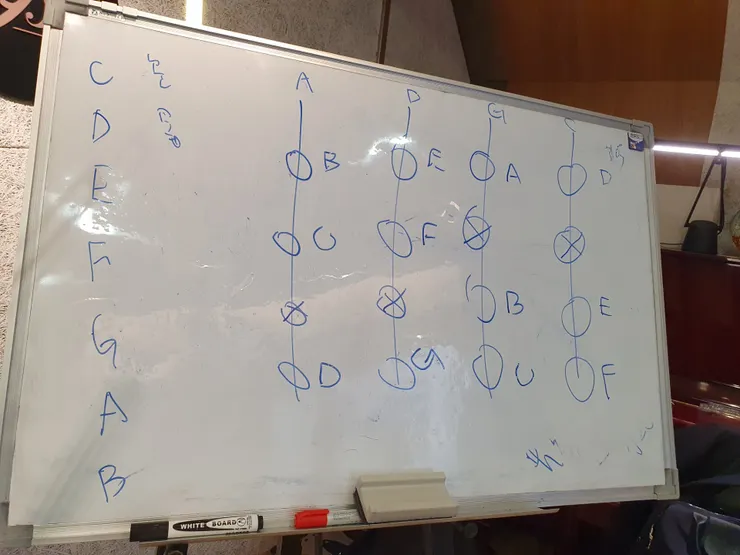 A D G C
B E A D
C F
B E
D G C F
C
D
E
F
G
A
B
WHITE BOARD